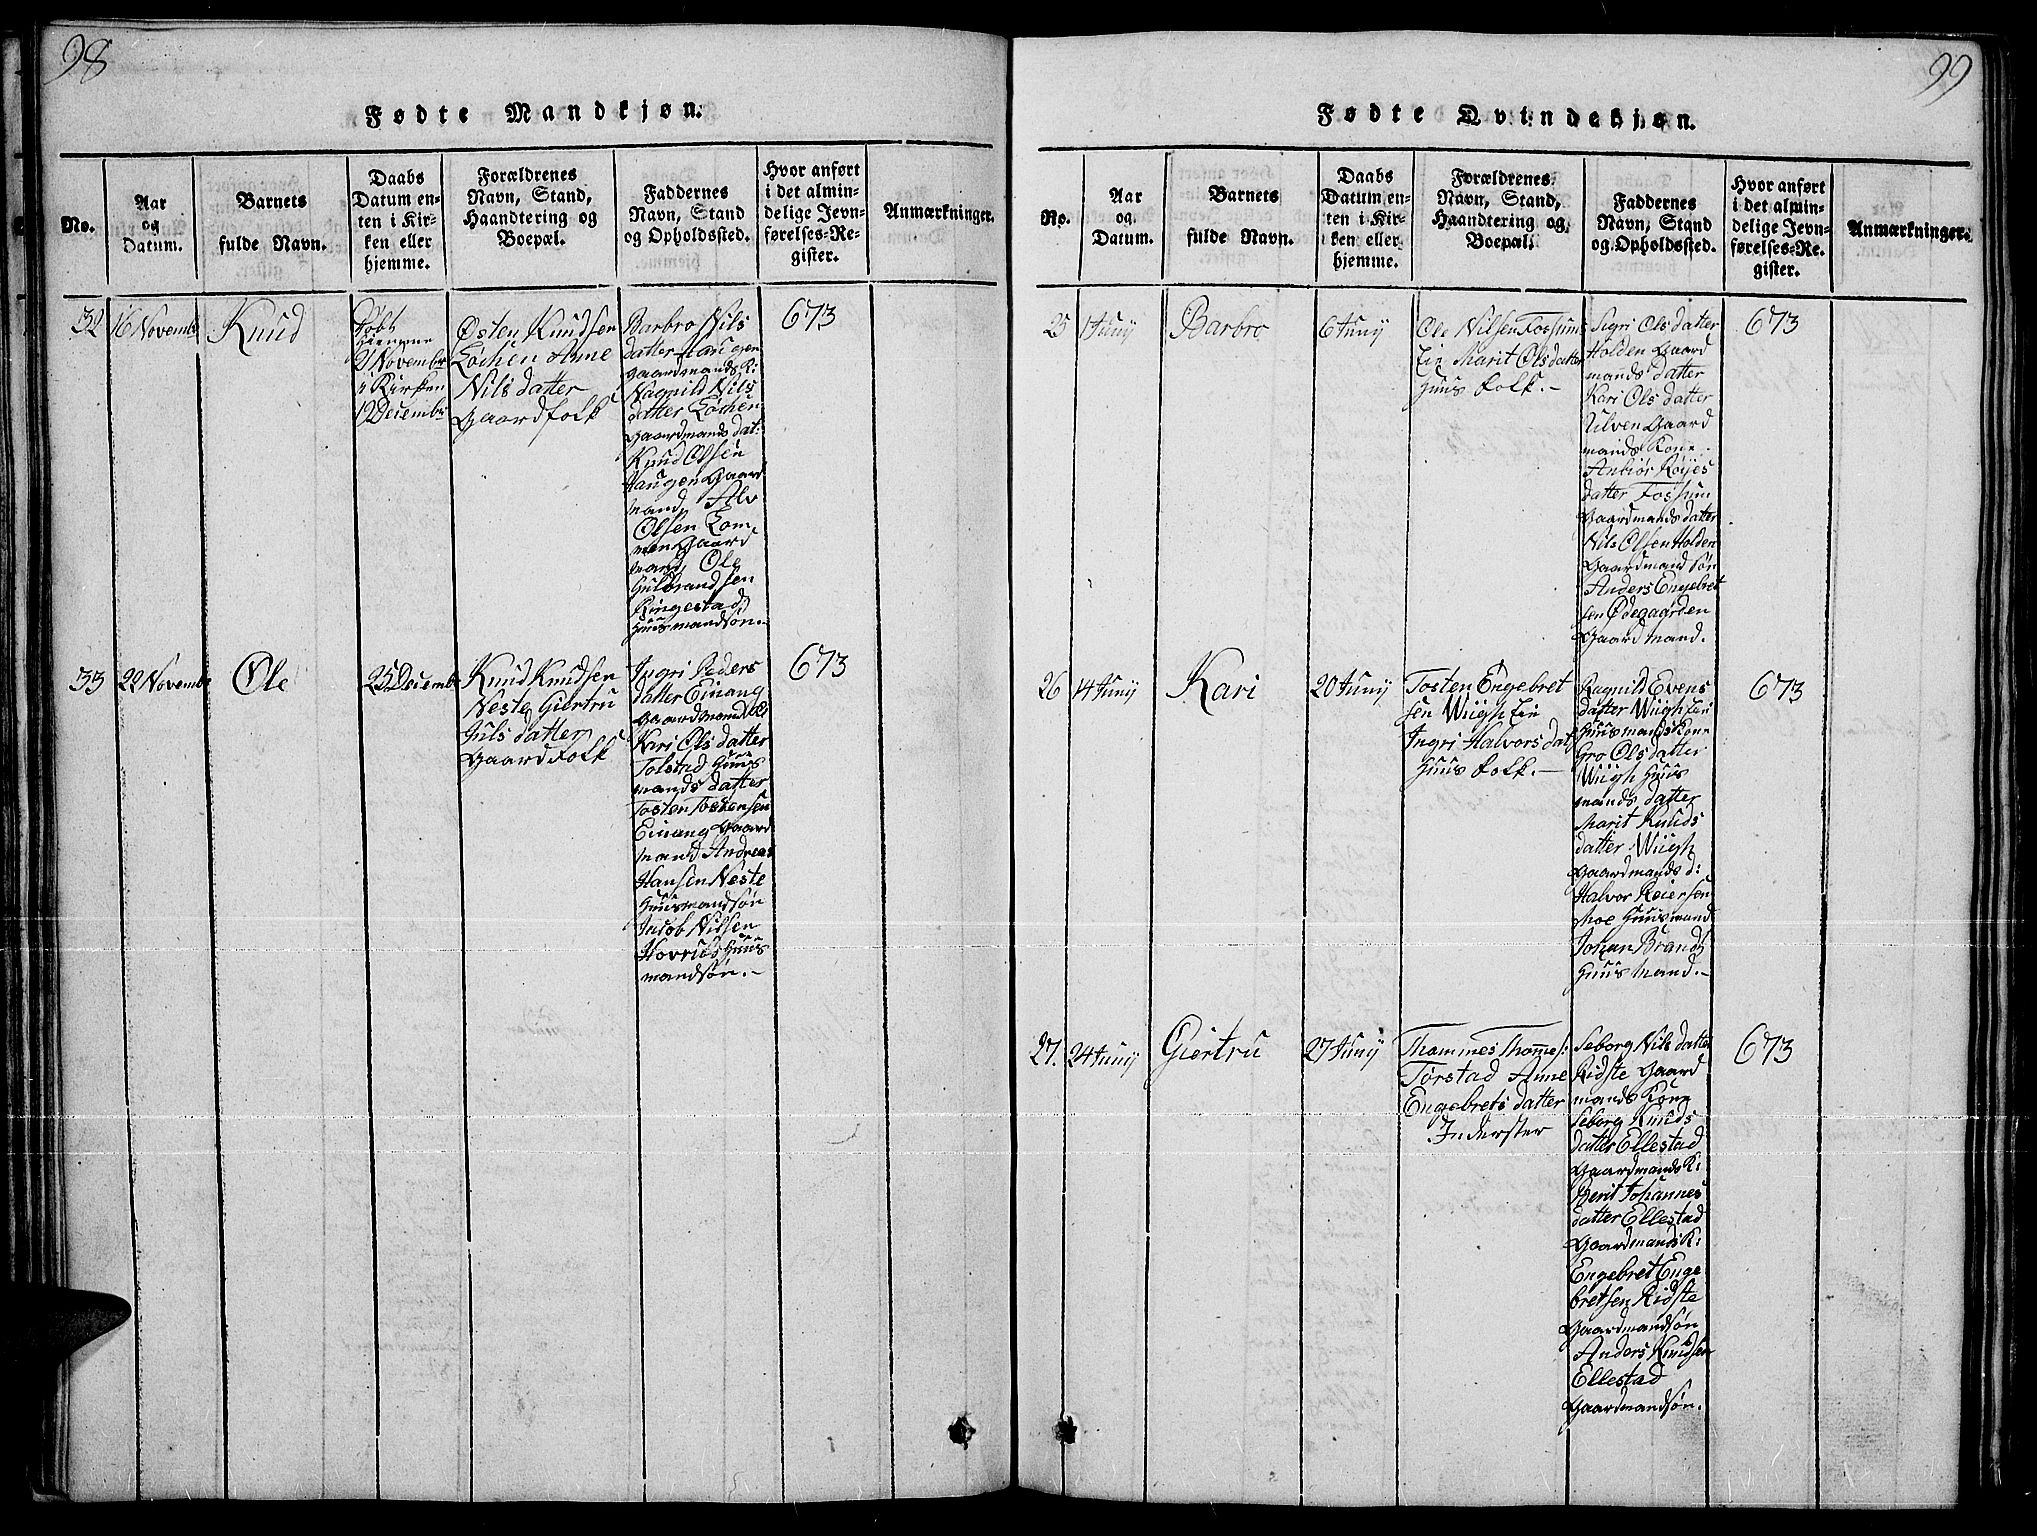 98
Fødte Mandkjøn.
No.
Aar
og
Datum.
Barnets
fulde Navn.
Daabs
Datum en-
ten i Kir-
ken eller
hjemme.
Forældrenes
Navn, Stand,
Haandtering og
Boepæl.
Faddernes
Navn, Stand
og Opholdssted.
Hvor anført
i det almin-
delige Jevn-
førelses-Re-
gister.
Anmærkninger.
32
16 Novembr
Knud
Døbt
hiemme
21 Novembr
i Kirken
19 Decembr
Østen Knudsen
Lochen Anne
Nils datter
Gaardfolk
Barbro Nils
datter Haugen
gaardmands K:
Ragnild Nils
datter Lochen
Gaardmands dat:
Knud Olsen
Haugen Gaard
mand, Alv
Olsen Lom-
men Gaard
mand, Ole
Gulbrandsen
Ringestad
Huusmandsøn.-
673
33
22 Novembr
Ole
25 Decembr
Knud Knudsen
Neste Giertru
Guls datter
Gaardfolk
Ingri Peders
datter Einang
Gaardmand
Kari Ols datter
Tolstad Huus
mands datter
Tosten Tostensen
Einang Gaard
mand Andreas
Hansen Neste
Huusmandsøn
Jacob Nilsen
Hovrud Huus
mandsøn.-
673
99
Fødte Qvindekjøn.
No.
Aar
og
Datum.
Barnets
fulde Navn.
Daabs
Datum en-
ten i Kir-
ken eller
hjemme.
Forældrenes
Navn, Stand,
Haandtering og
Boepæl.
Faddernes
Navn, Stand
og Opholdssted.
Hvor anført
i det almin-
delige Jevn-
førelses-Re-
gister.
Anmærkninger.
25
1 Juny
Barbro
6 Juny
Ole Nilsen Fossums
Eie Marit Olsdatter
Huus folk.-
Sigri Ols datter
Holden Gaard
mands datter
Kari Ols datter
Ulven Gaard
mands Kone
Anbiør Røyes
datter Fossum
Gaardmands datter
Nils Olsen Holden
Gaardmand søn
Anders Engebret
sen Ødegaarden
Gaard mand.
673
26
14 Juny
Kari
20 Juny
Tosten Engebret
sen Wiigh Eie
Ingri Halvors dat
Huus folk.-
Ragnild Evens
datter Wiigh Eie
Huusmands Kone
Gro Ols datter
Wiigh Huus
mands datter
Marit Knuds
datter Wiigh
Gaardmands d:
Halvor Reiersen
Moe Huusmand
Johan Brands
Huus mand.-
673
27.
24 Juny
Giertru
27 Juny
Thommes Thomes:
Tørstad Anne
Engebrets datter
Inderster
Seborg Nils datter
Ridste Gaard
mands Kone
Seborg Knuds
datter Ellestad
Gaardmands K:
Berit Johannes
datter Ellestad
Gaardmands K:
Engebret Enge
bretsen Ridste
Gaardmandsøn
Anders Knudsen
Ellestad
Gaardmandsøn.
673